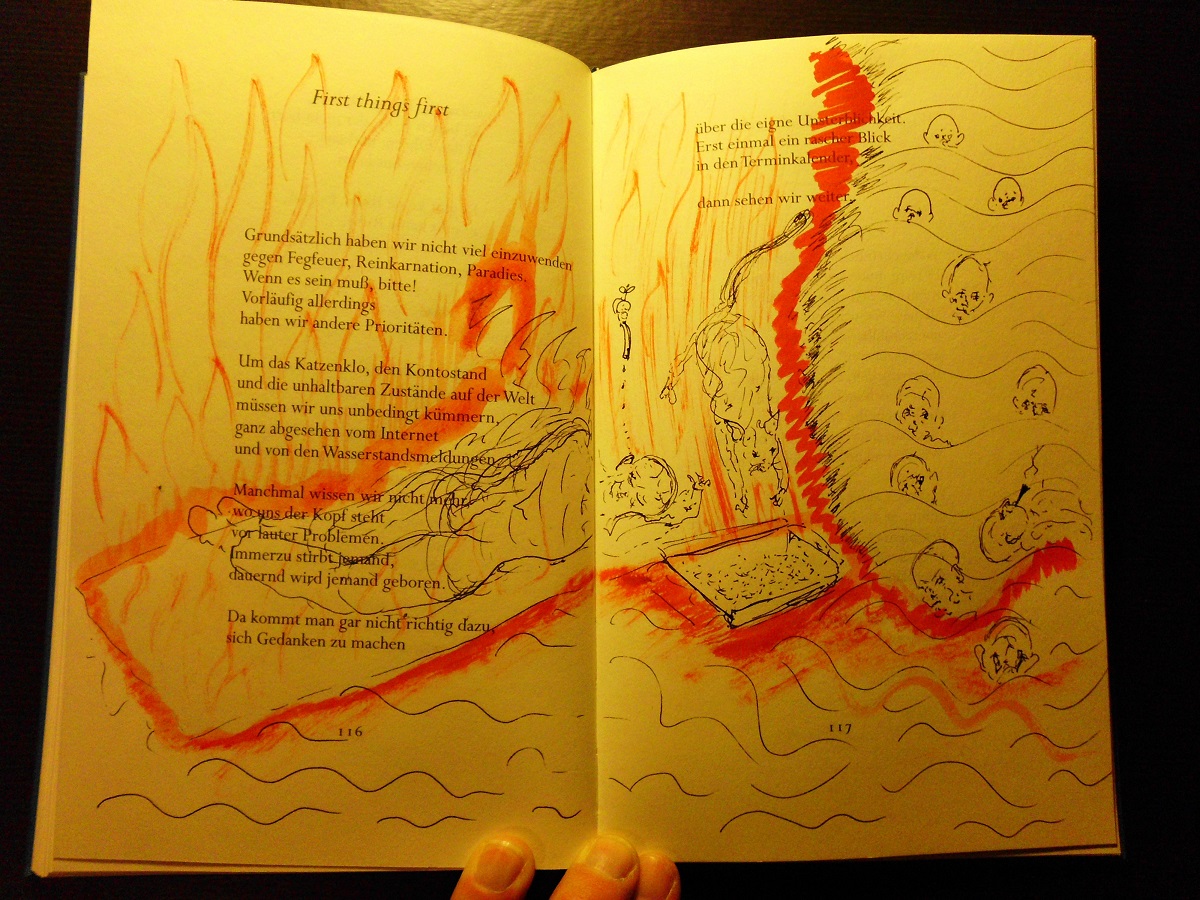 First things first
Grundsätzlich haben wir nicht viel einzuwenden
gegen Fegfeuer, Reinkarnation, Paradies.
Wenn es sein muß, bitte!
Vorläufig allerdings
haben wir andere Prioritäten.
Um das Katzenklo, den Kontostand
und die unhaltbaren Zustände auf der Welt
müssen wir uns unbedingt kümmern,
ganz abgesehen vom Internet
und von den Wasserstandsmeldungen.
Manchmal wissen wir nicht mehr,
wo uns der Kopf steht
vor lauter Problemen.
Immerzu stirbt jemand,
dauernd wird jemand geboren.
Da kommt man gar nicht richtig dazu,
sich Gedanken zu machen
116
über die eigne Unsterblichkeit.
Erst einmal ein rascher Blick
in den Terminkalender,
dann sehen wir weiter.
117